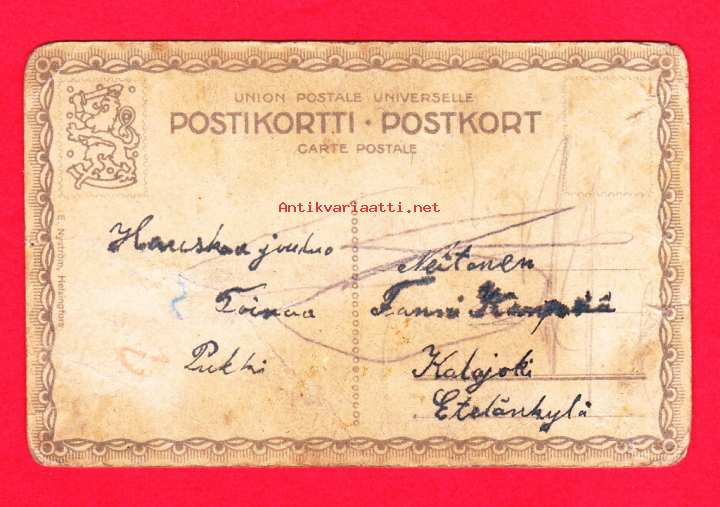 UNION POSTALE UNIVERSELLE
POSTIKORTTI · POSTKORT
CARTE POSTALE
Antikvariaatti.net
E. Nyström, Helsingfors
Hauskaa joulua
Toivoo
Pukki
Neitonen
Fanni
Kalajoki
Etelänkylä